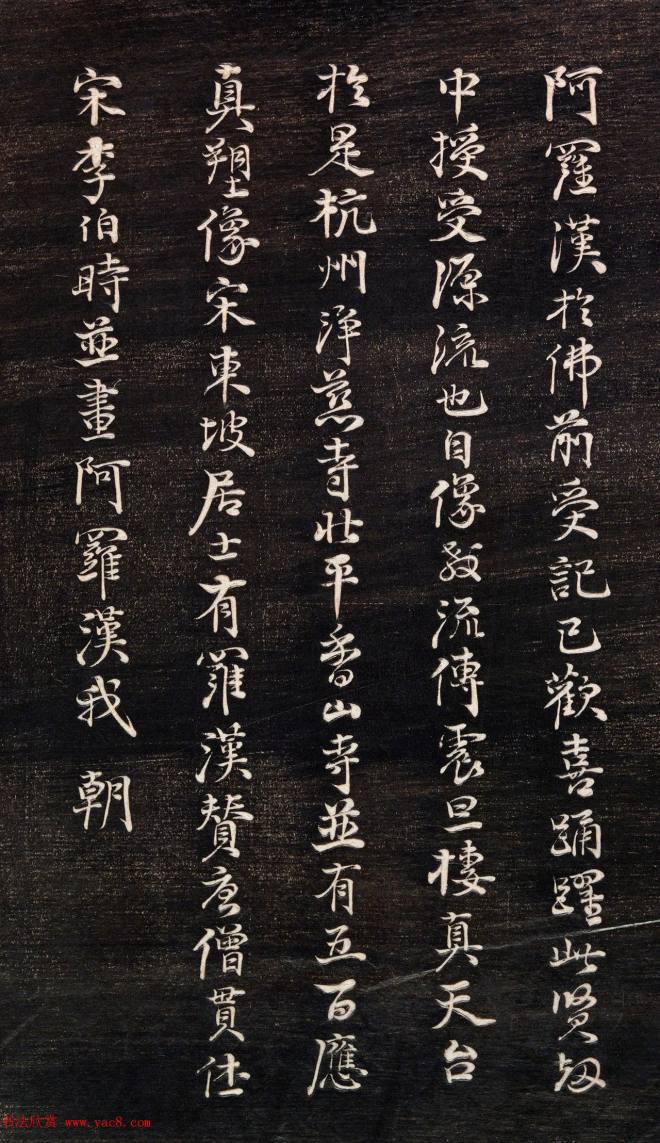 阿羅漢於佛前受記已歡喜踊躍此賢劫
中授受源流也自像教流傳震旦棲真天台
於是杭州淨慈寺北平香山寺並有五百應
真塑像宋東坡居士有羅漢贊唐僧貫休
宋李伯時並畫阿羅漢我朝
书法欣赏 www.yac8.com